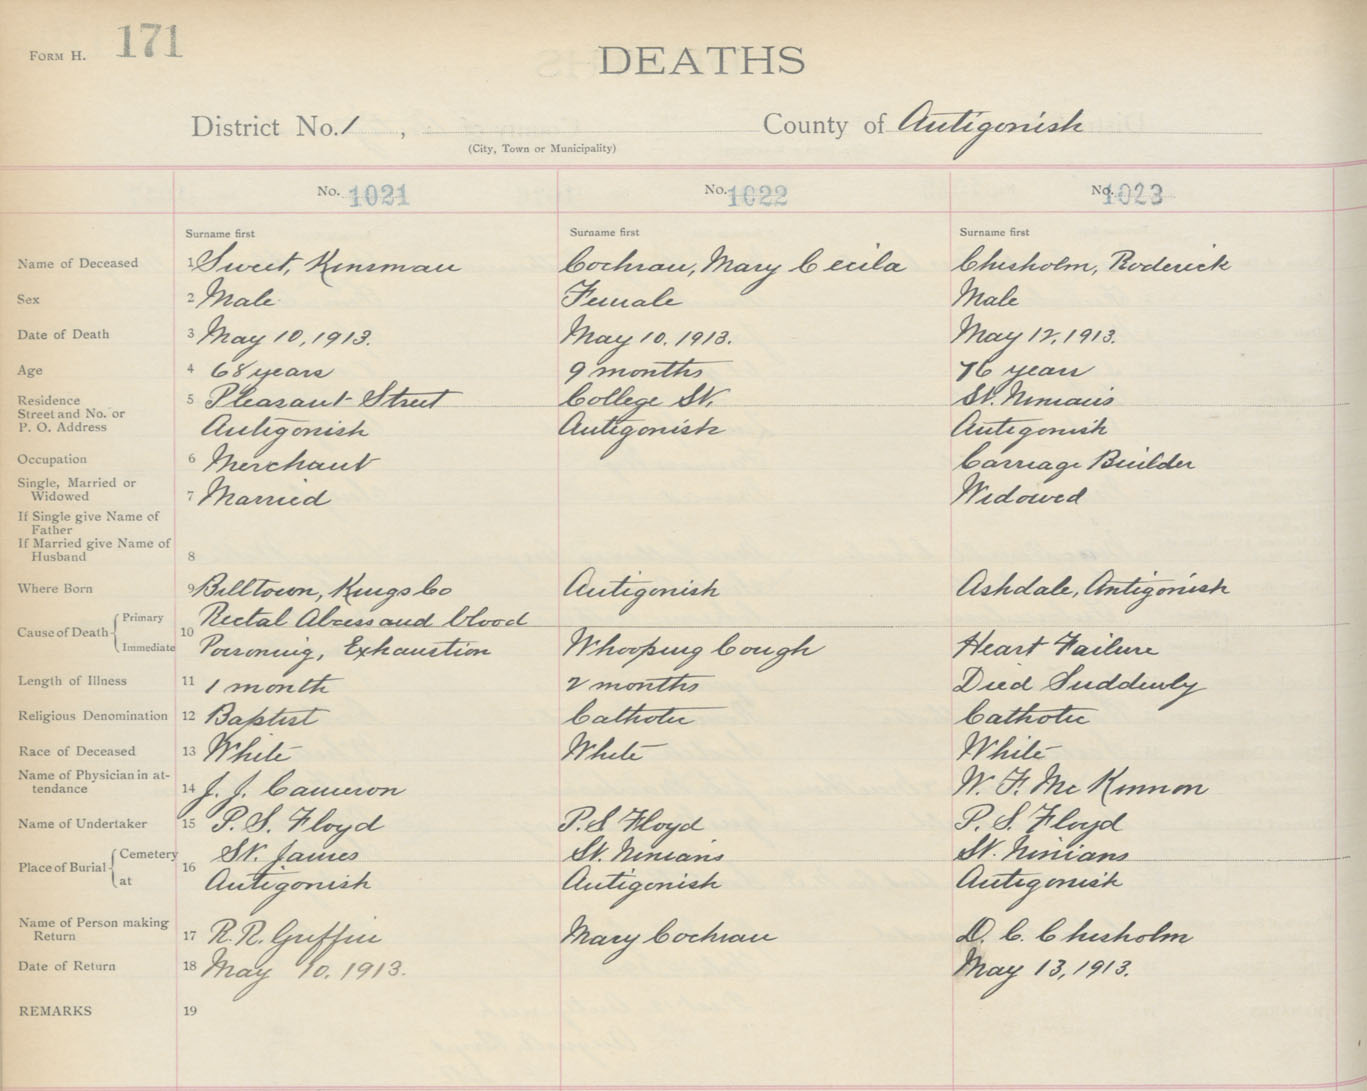 FORM H. 171
DEATHS
District No. 1 , County of Antigonish
(City, Town or Municipality)
No. 1021 No. 1022 No. 1023
Surname first Surname first Surname first
Name of Deceased 1 Sweet, Kinsman Cochran, Mary Cecila Chisholm, Roderick
Sex 2 Male Female Male
Date of Death 3 May 10, 1913. May 10. 1913. May 12, 1913.
Age 4 68 years 9 months 76 years
Residence 5 Pleasant Street College St. St. Ninians
Street and No. or
P. O. Address Antigonish Antigonish Antigonish
Occupation 6 Merchant Carriage Builder
Single, Married or
Widowed 7 Married Widowed
If Single give Name of
Father
If Married give Name of
Husband 8
Where Born 9 Billtown, Kings Co Antigonish Ashdale, Antigonish
Cause of Death Primary 10 Rectal Abcess and blood
Immediate Poisoning, Exhaustion Whooping Cough Heart Failure
Length of Illness 11 1 month 2 months Died Suddenly
Religious Denomination 12 Baptist Catholic Catholic
Race of Deceased 13 White White White
Name of Physician in at-
tendance 14 J. J. Cameron W. F. Mc Kinnon
Name of Undertaker 15 P. S. Floyd P. S Floyd P. S. Floyd
Place of Burial Cemetery 16 St. James St. Ninians St. Ninians
at Antigonish Antigonish Antigonish
Name of Person making
Return 17 R. R. Griffin Mary Cochran D. C. Chisholm
Date of Return 18 May 10, 1913. May 13, 1913.
REMARKS 19